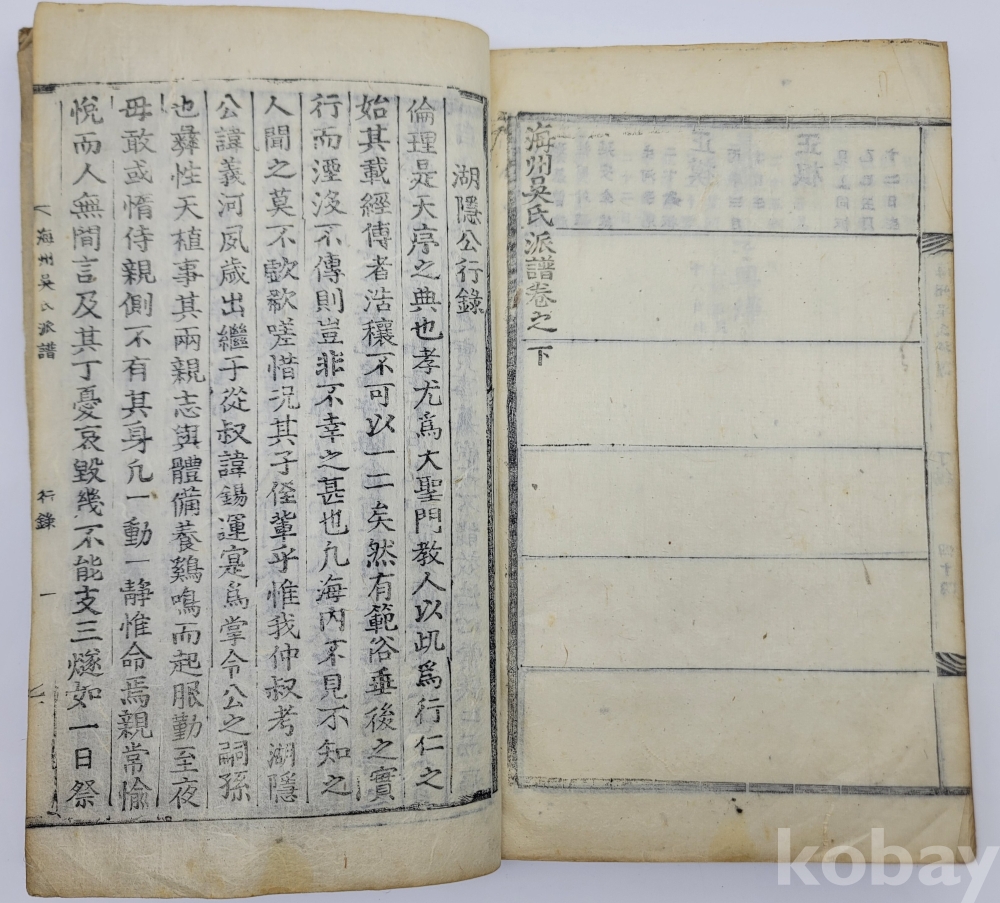 海州吳氏派譜卷之下
湖隱公行錄
倫理是天序之典也孝尤爲大聖門教人以此爲行仁之
始其載經傳者浩穰不可以一二矣然有範俗垂後之實
行而湮沒不傳則豈非不幸之甚也凡海內不見不知之
人聞之莫不歔欷嗟惜況其子侄輩乎惟我仲叔考湖隱
公諱義河夙歲出繼于從叔諱錫運寔爲掌令公之嗣孫
也彛性天植事其兩親志與體備養鷄鳴而起服勤至夜
毋敢或惰侍親側不有其身凡一動一靜惟命焉親常愉
悅而人無間言及其丁憂哀毀幾不能支三燧如一日祭
海州吳氏派譜
行錄
一
kobay